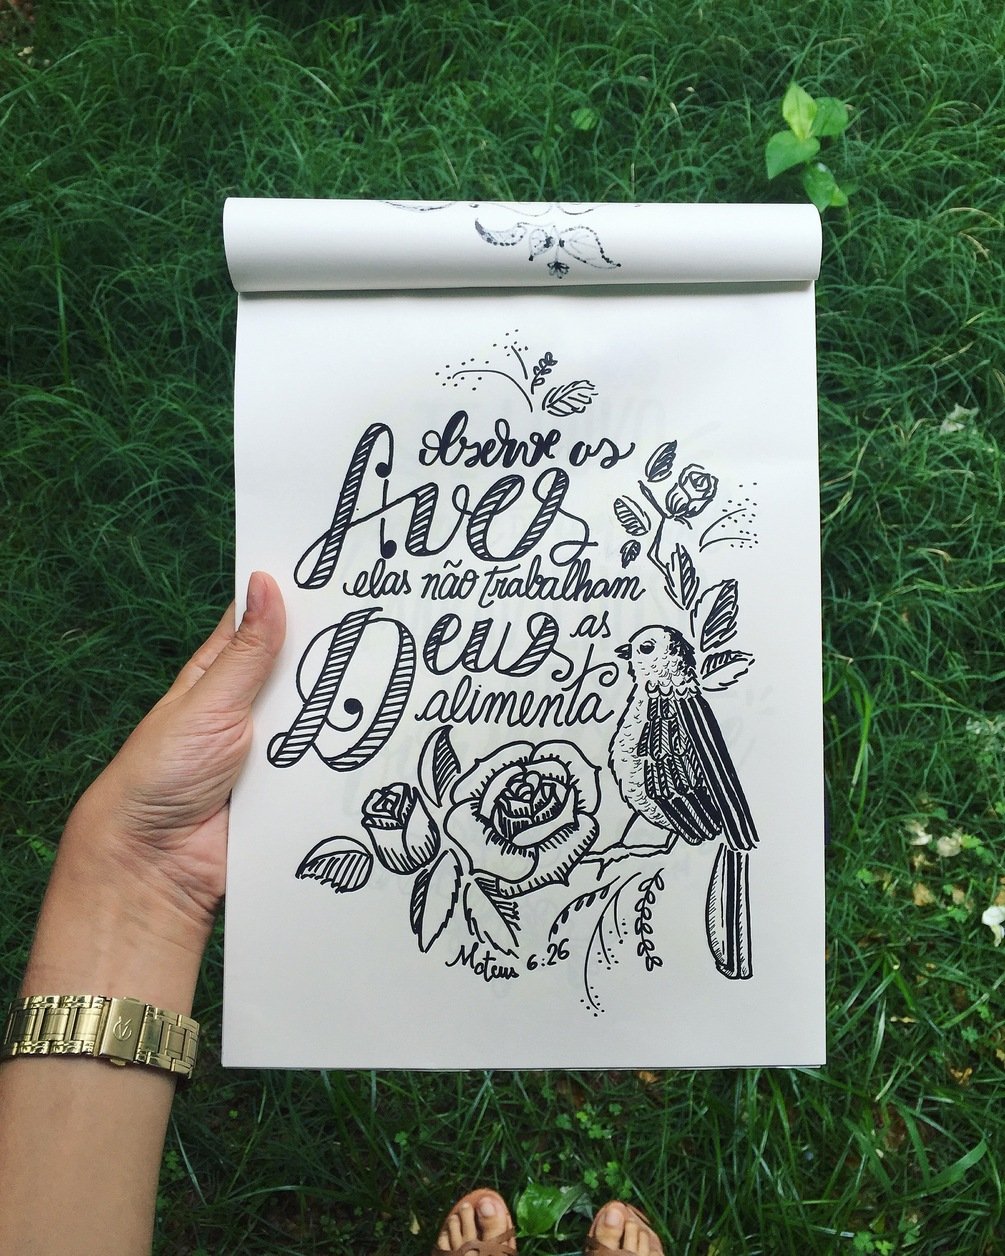 observe as
Aves
elas não trabalham
Deus as
alimenta
Mateus 6:26